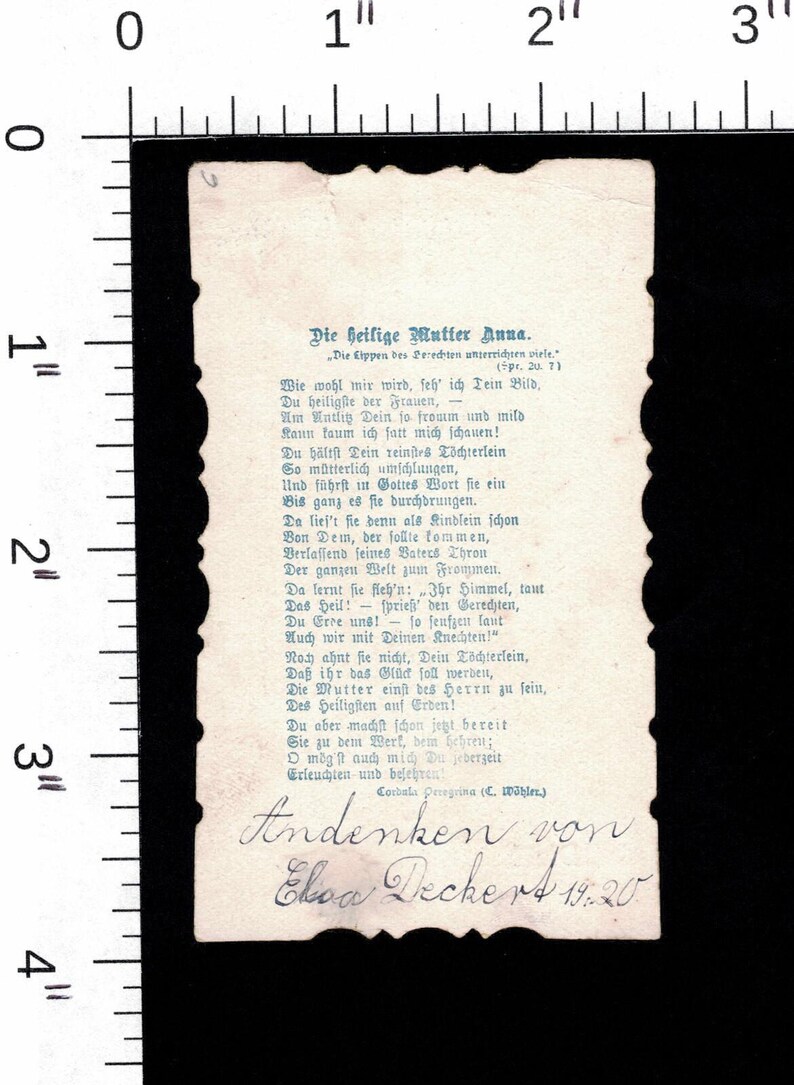 0 1" 2" 3"
0
1"
2"
3"
4"
Die heilige Mutter Anna.
„Die Lippen des Gerechten unterrichten viele."
(Spr. 20. 7)
Wie wohl mir wird, seh' ich Dein Bild,
Du heiligste der Frauen, —
Am Antlitz Dein so fromm und mild
Kann kaum ich satt mich schauen!
Du hältst Dein reinstes Töchterlein
So mütterlich umschlungen,
Und führst in Gottes Wort sie ein
Bis ganz es sie durchdrungen.
Da lies't sie denn als Kindlein schon
Von Dem, der sollte kommen,
Verlassend seines Vaters Thron
Der ganzen Welt zum Frommen.
Da lernt sie fleh'n: „Ihr Himmel, taut
Das Heil! — sprieß' den Gerechten,
Du Erde uns! — so seufzen laut
Auch wir mit Deinen Knechten!"
Noch ahnt sie nicht, Dein Töchterlein,
Daß ihr das Glück soll werden,
Die Mutter einst des Herrn zu sein,
Des Heiligsten auf Erden!
Du aber machst schon jetzt bereit
Sie zu dem Werk, dem hehren;
O mög'st auch mich Du jederzeit
Erleuchten und belehren!
Cordula Peregrina (C. Wöhler.)
Andenken von
Deckert 19.20